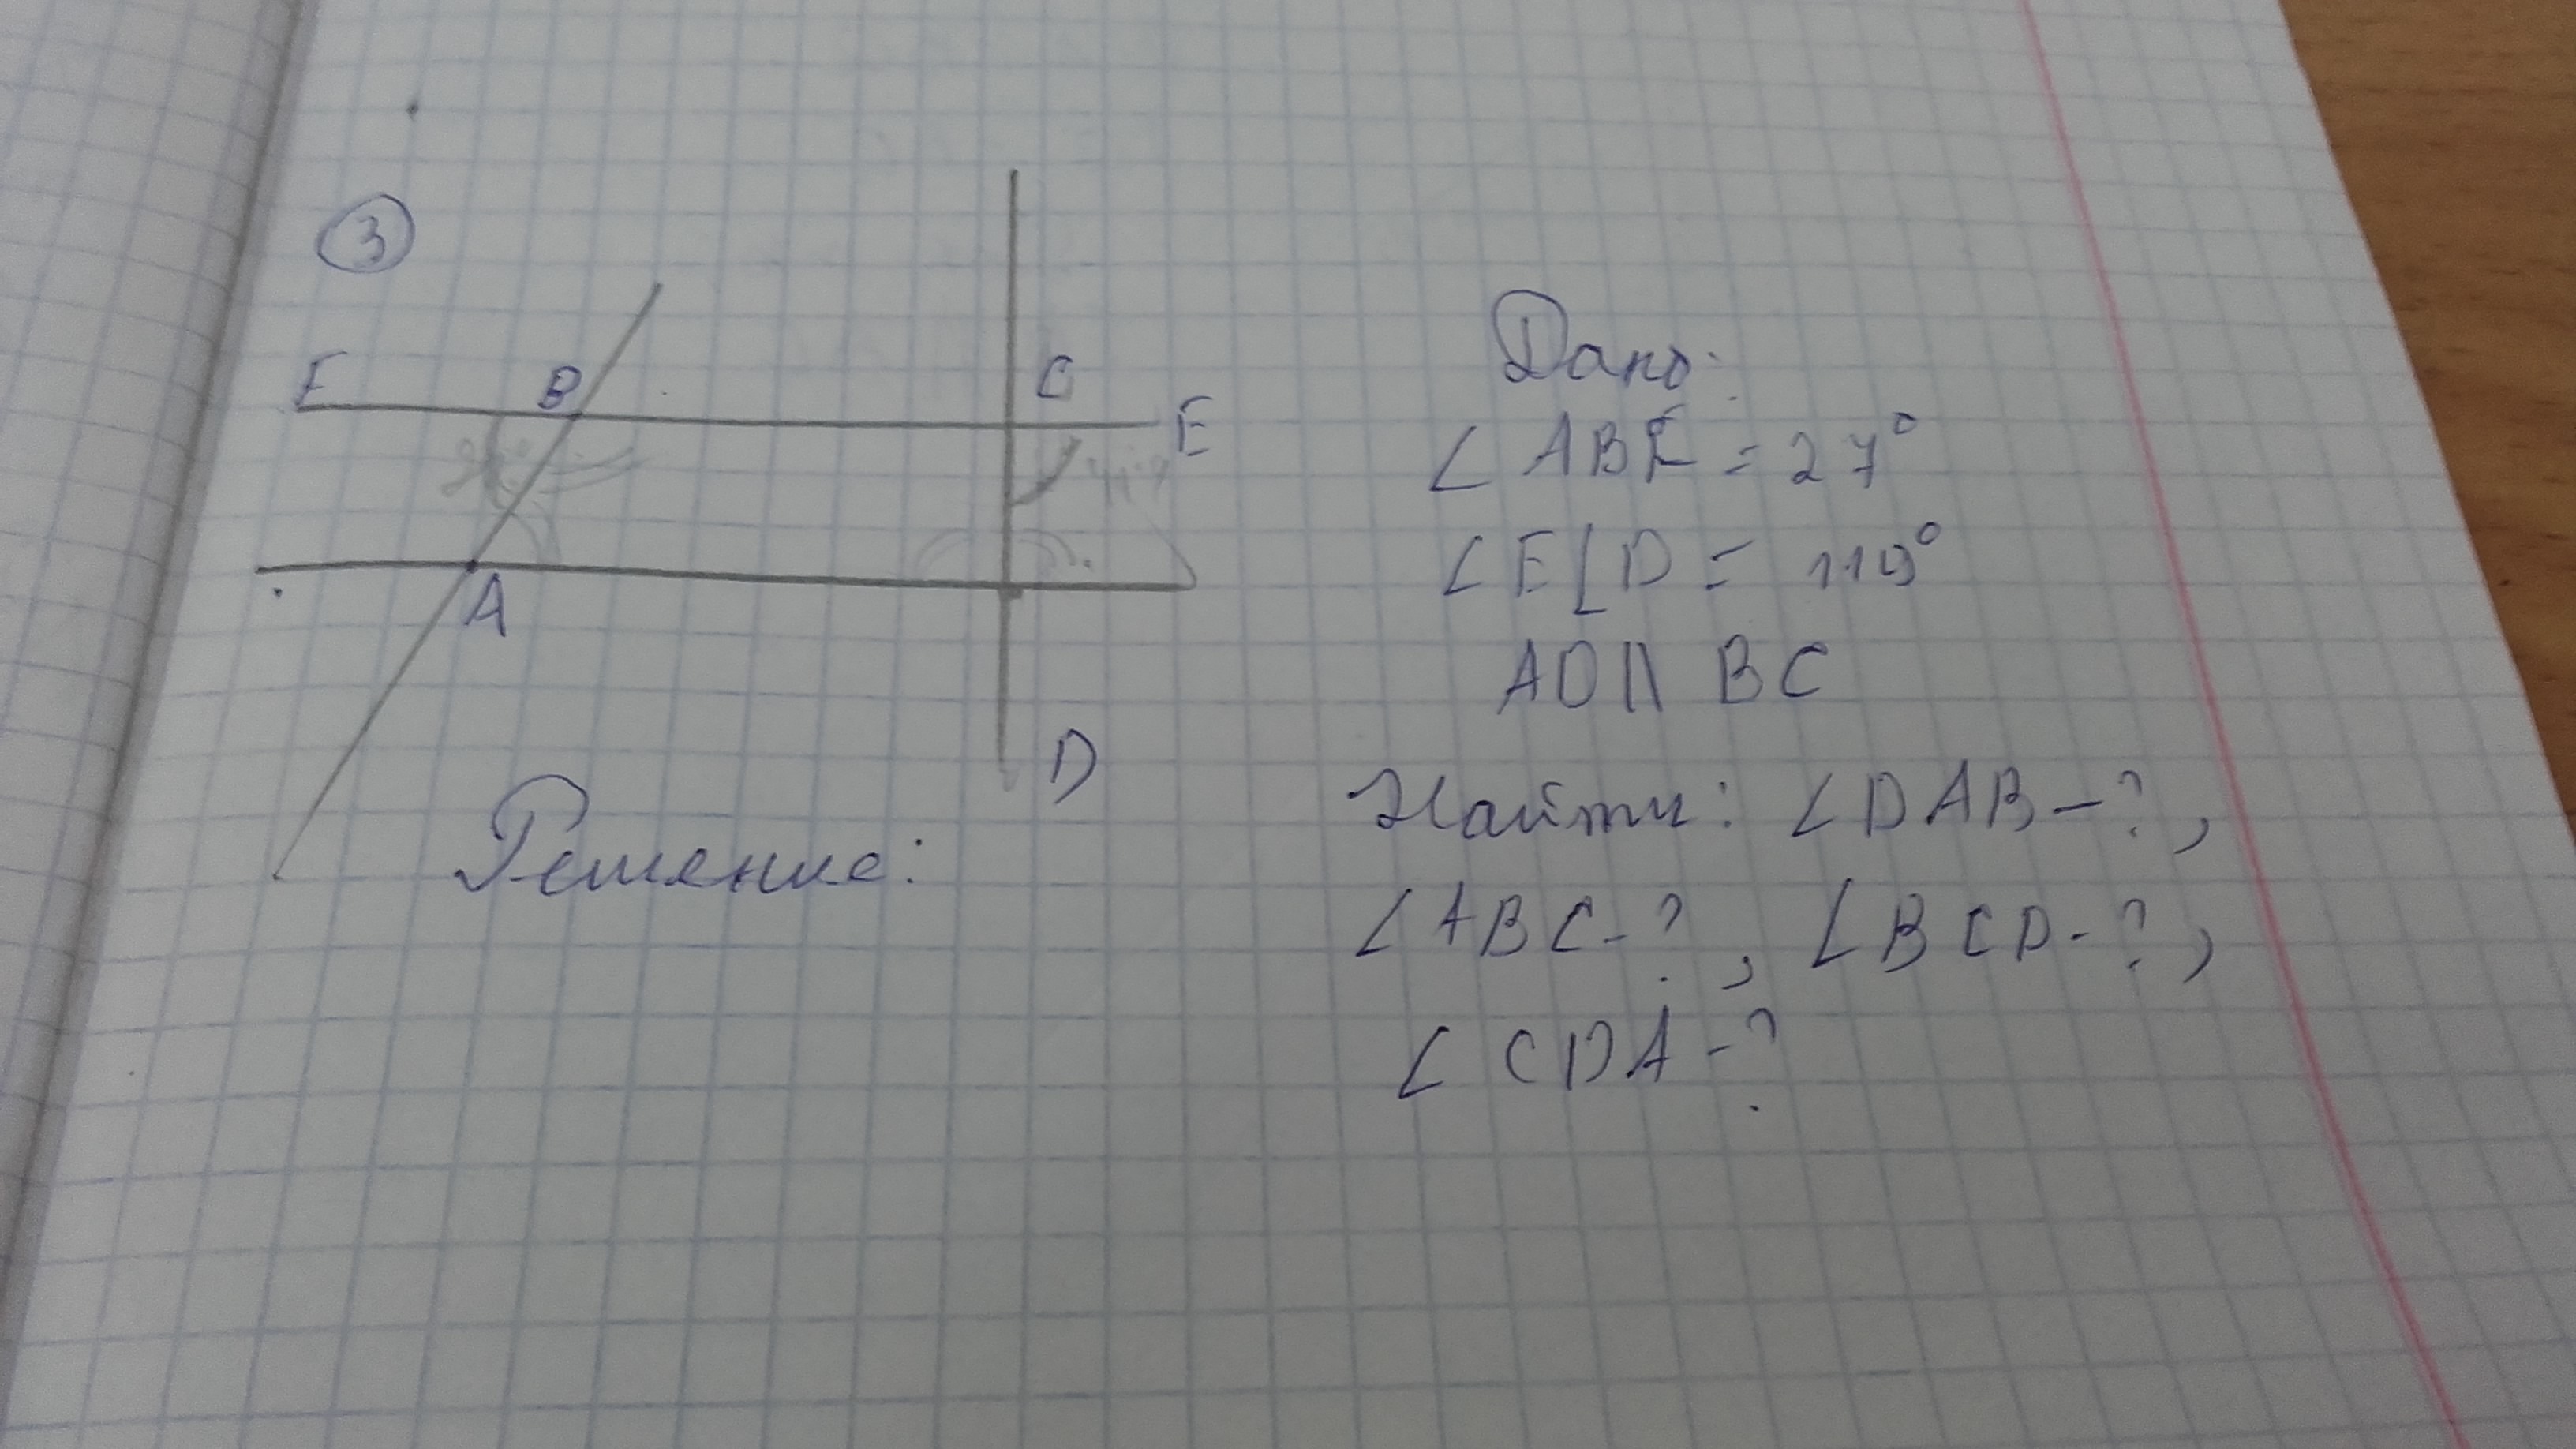 3
F B C E
A
D
Дано:
∠ABF = 27°
∠ECD = 119°
AD || BC
Найти: ∠DAB - ?,
∠ABC - ?, ∠BCD - ?,
∠CDA - ?
Решение: